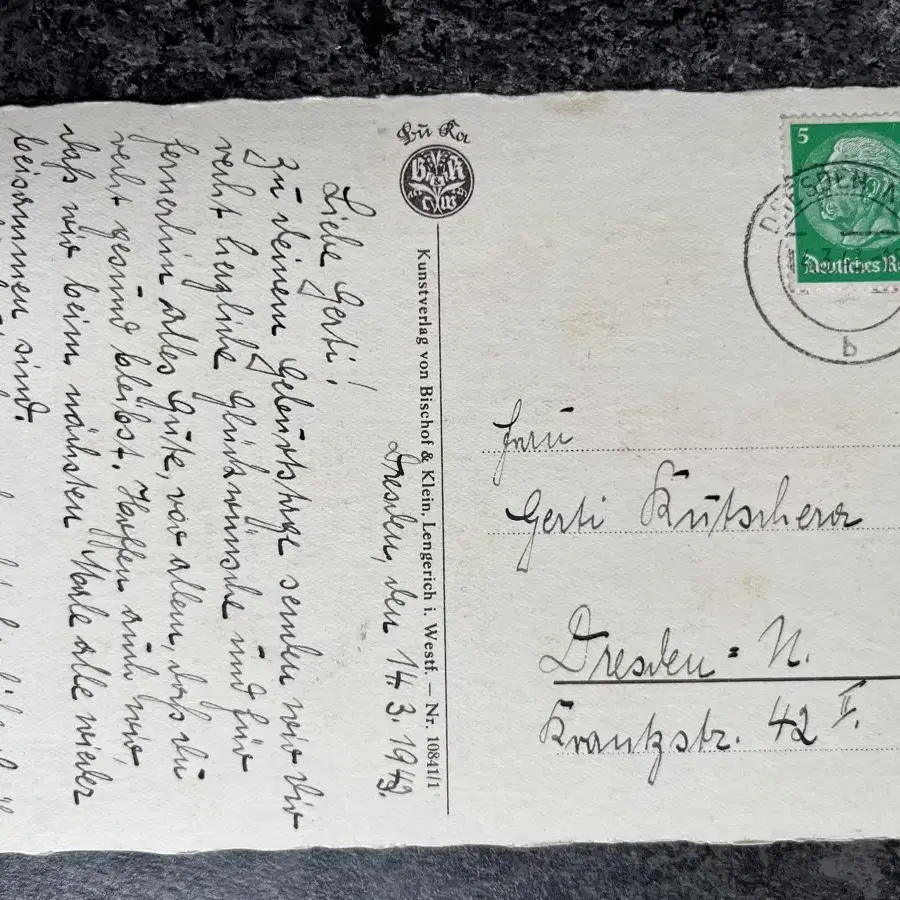 Bu Ka
B & K
L i W
Kunstverlag von Bischof & Klein, Lengerich i. Westf. — Nr. 10841/1
Dresden, den 14 3. 1943.
Liebe Gerti!
Zu deinem Geburtstage senden wir Dir
recht herzliche Glückwünsche und für
fernerhin alles Gute, vor allem, daß du
recht gesund bleibst. Hoffen auch wir,
daß wir beim nächsten Male alle wieder
beisammen sind.
5
Deutsches Re
DRESDEN A
b
Frau
Gerti Kutschera
Dresden = N.
Krantzstr. 42 II.